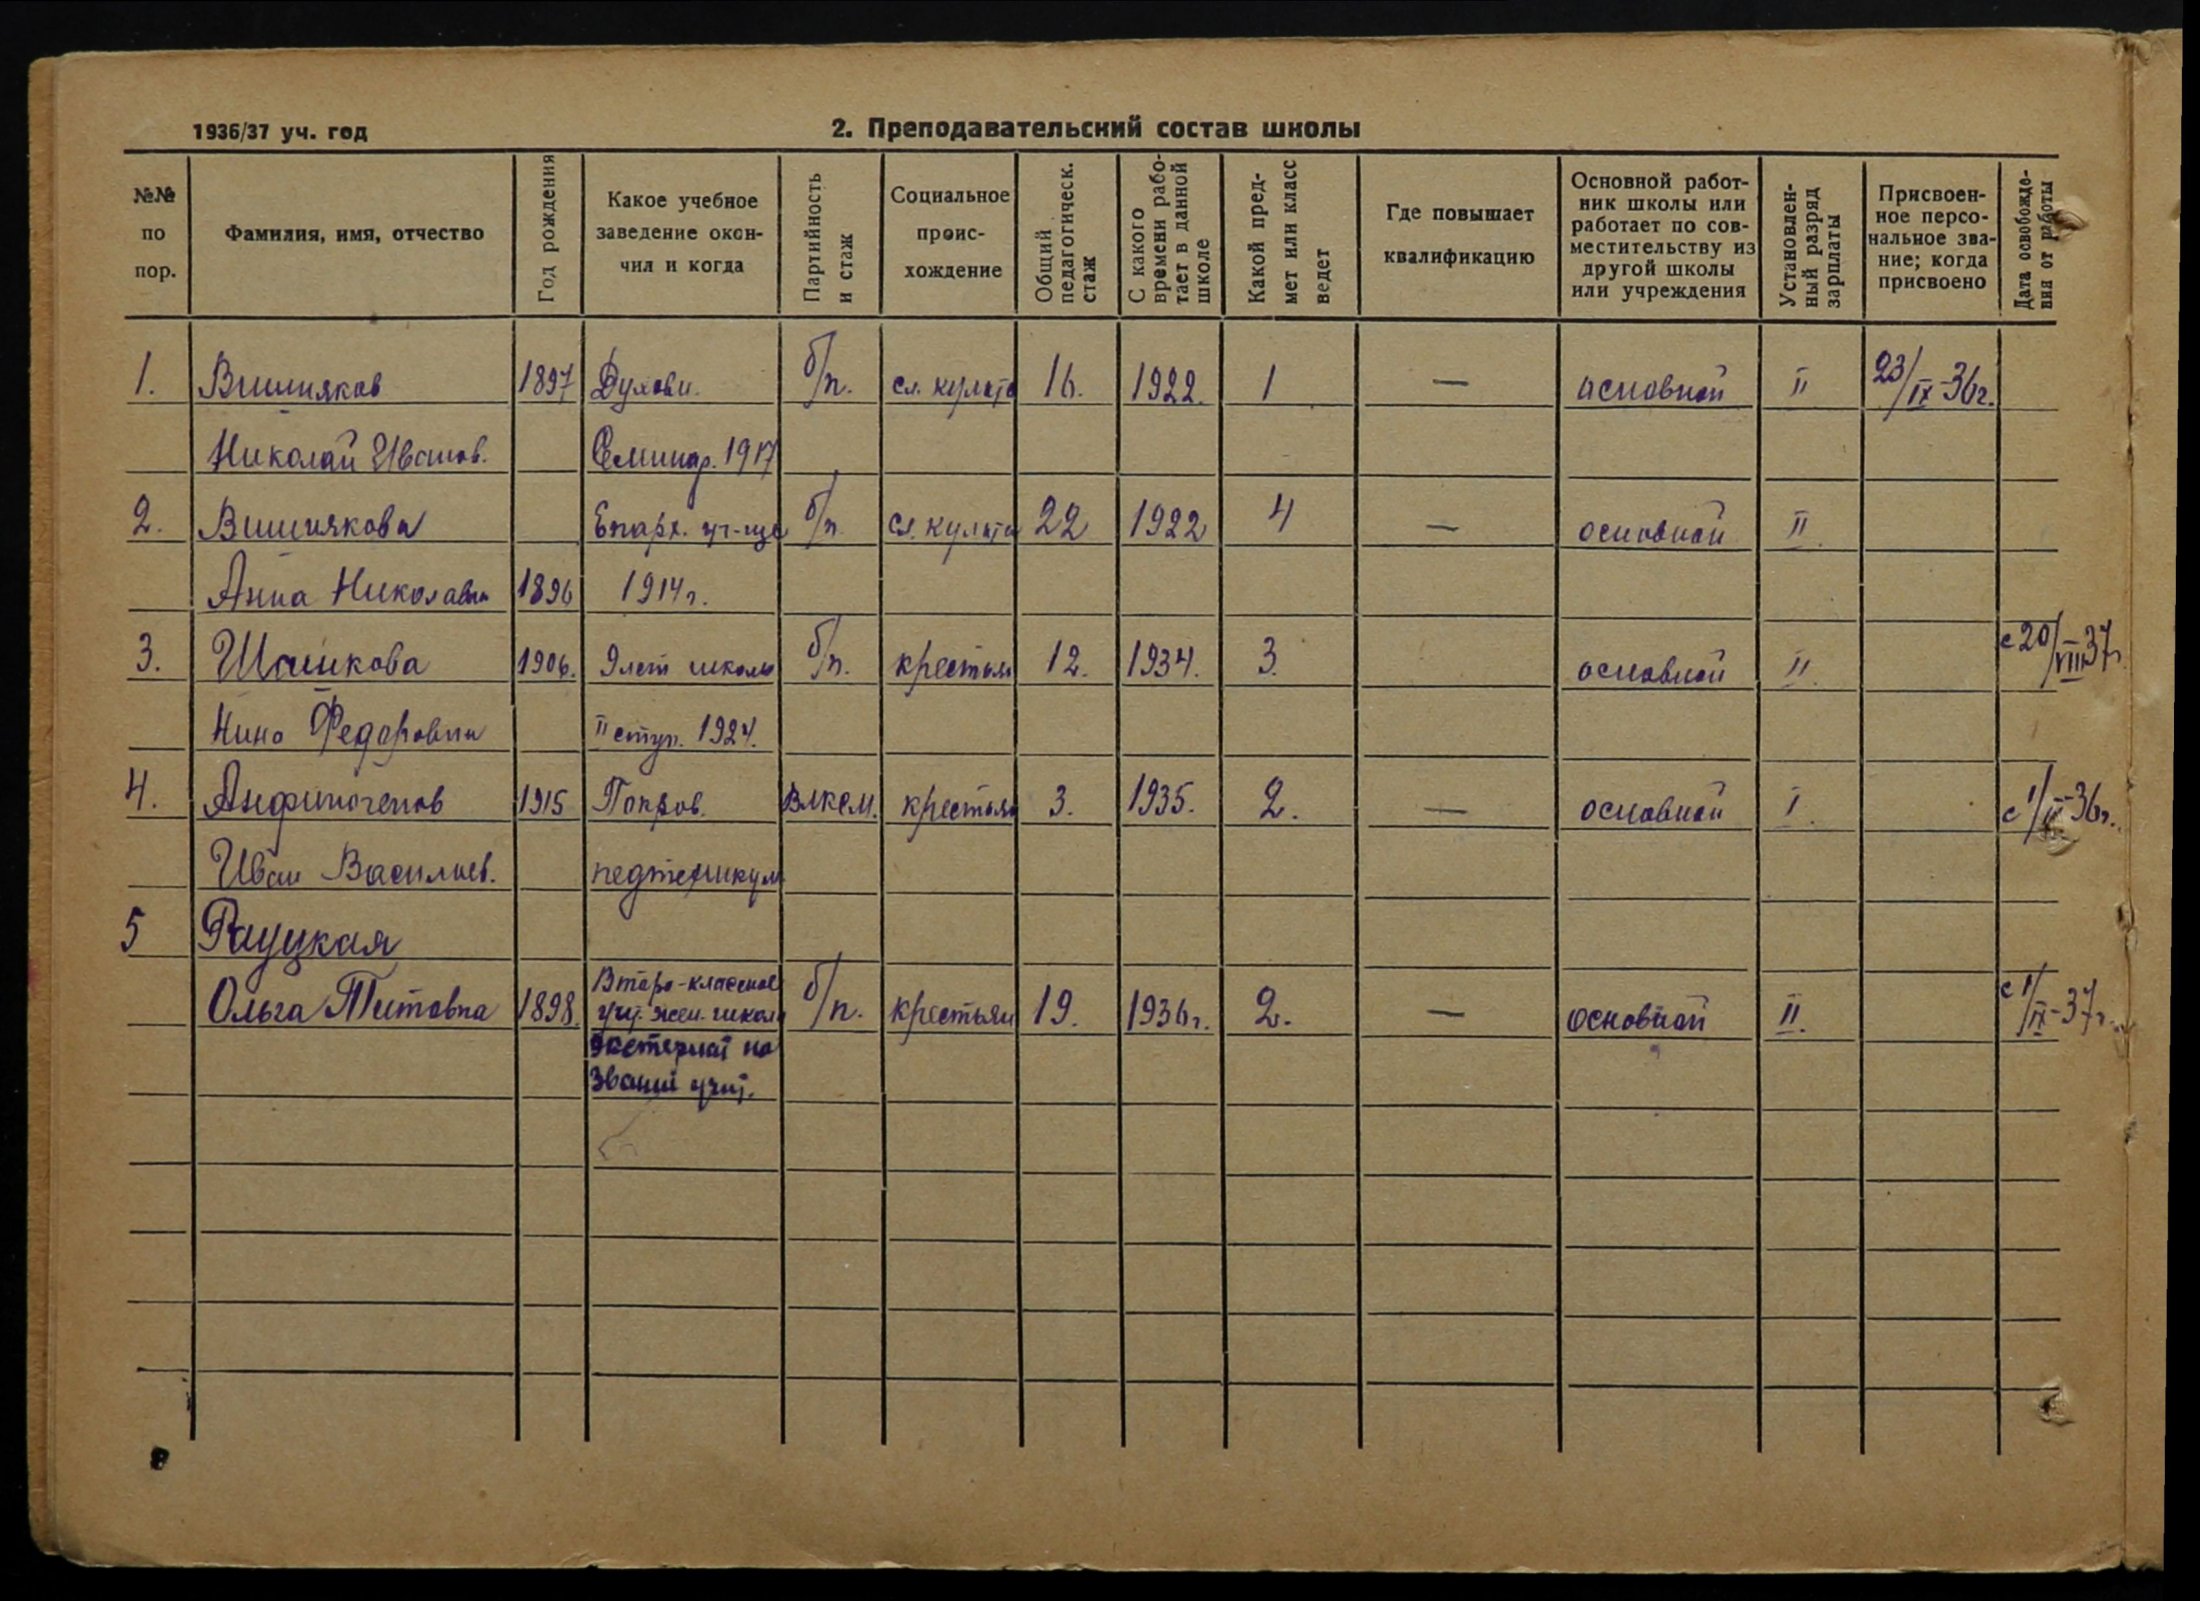 1936/37 уч. год
2. Преподавательский состав школы
№№ по пор.
Фамилия, имя, отчество
Год рождения
Какое учебное заведение окон-чил и когда
Партийность и стаж
Социальное проис-хождение
Общий педагогическ. стаж
С какого времени рабо-тает в данной школе
Какой пред-мет или класс ведет
Где повышает квалификацию
Основной работ-ник школы или работает по сов-местительству из другой школы или учреждения
Установлен-ный разряд зарплаты
Присвоен-ное персо-нальное зва-ние; когда присвоено
Дата освобожде-ния от работы
1. Вишняков 1897 Духовн. б/п. сл. культа 16. 1922. 1 — основной II 23/IX-36г.
Николай Иванов. Семинар. 1917
2. Вишнякова Епарх. уч-ще б/п. сл. культа 22 1922 4 — основной II.
Анна Николавна 1896 1914 г.
3. Шашкова 1906. 9 лет школы б/п. крестьян 12. 1934. 3. основной II. с 20/VIII 37г.
Нина Федоровна II ступ. 1924.
4. Анфиногенов 1915 Покров. Влксм. крестьян 3. 1935. 2. — основной I. с 1/ -36г.
Иван Васильев. педтехникум
5 Рауцкая
Ольга Титовна 1898. Второ-классной б/п. крестьян 19. 1936г. 2. — основной II. с 1/IX-37г.
уч. жен. школа
Экстернат на
звание учит.
8